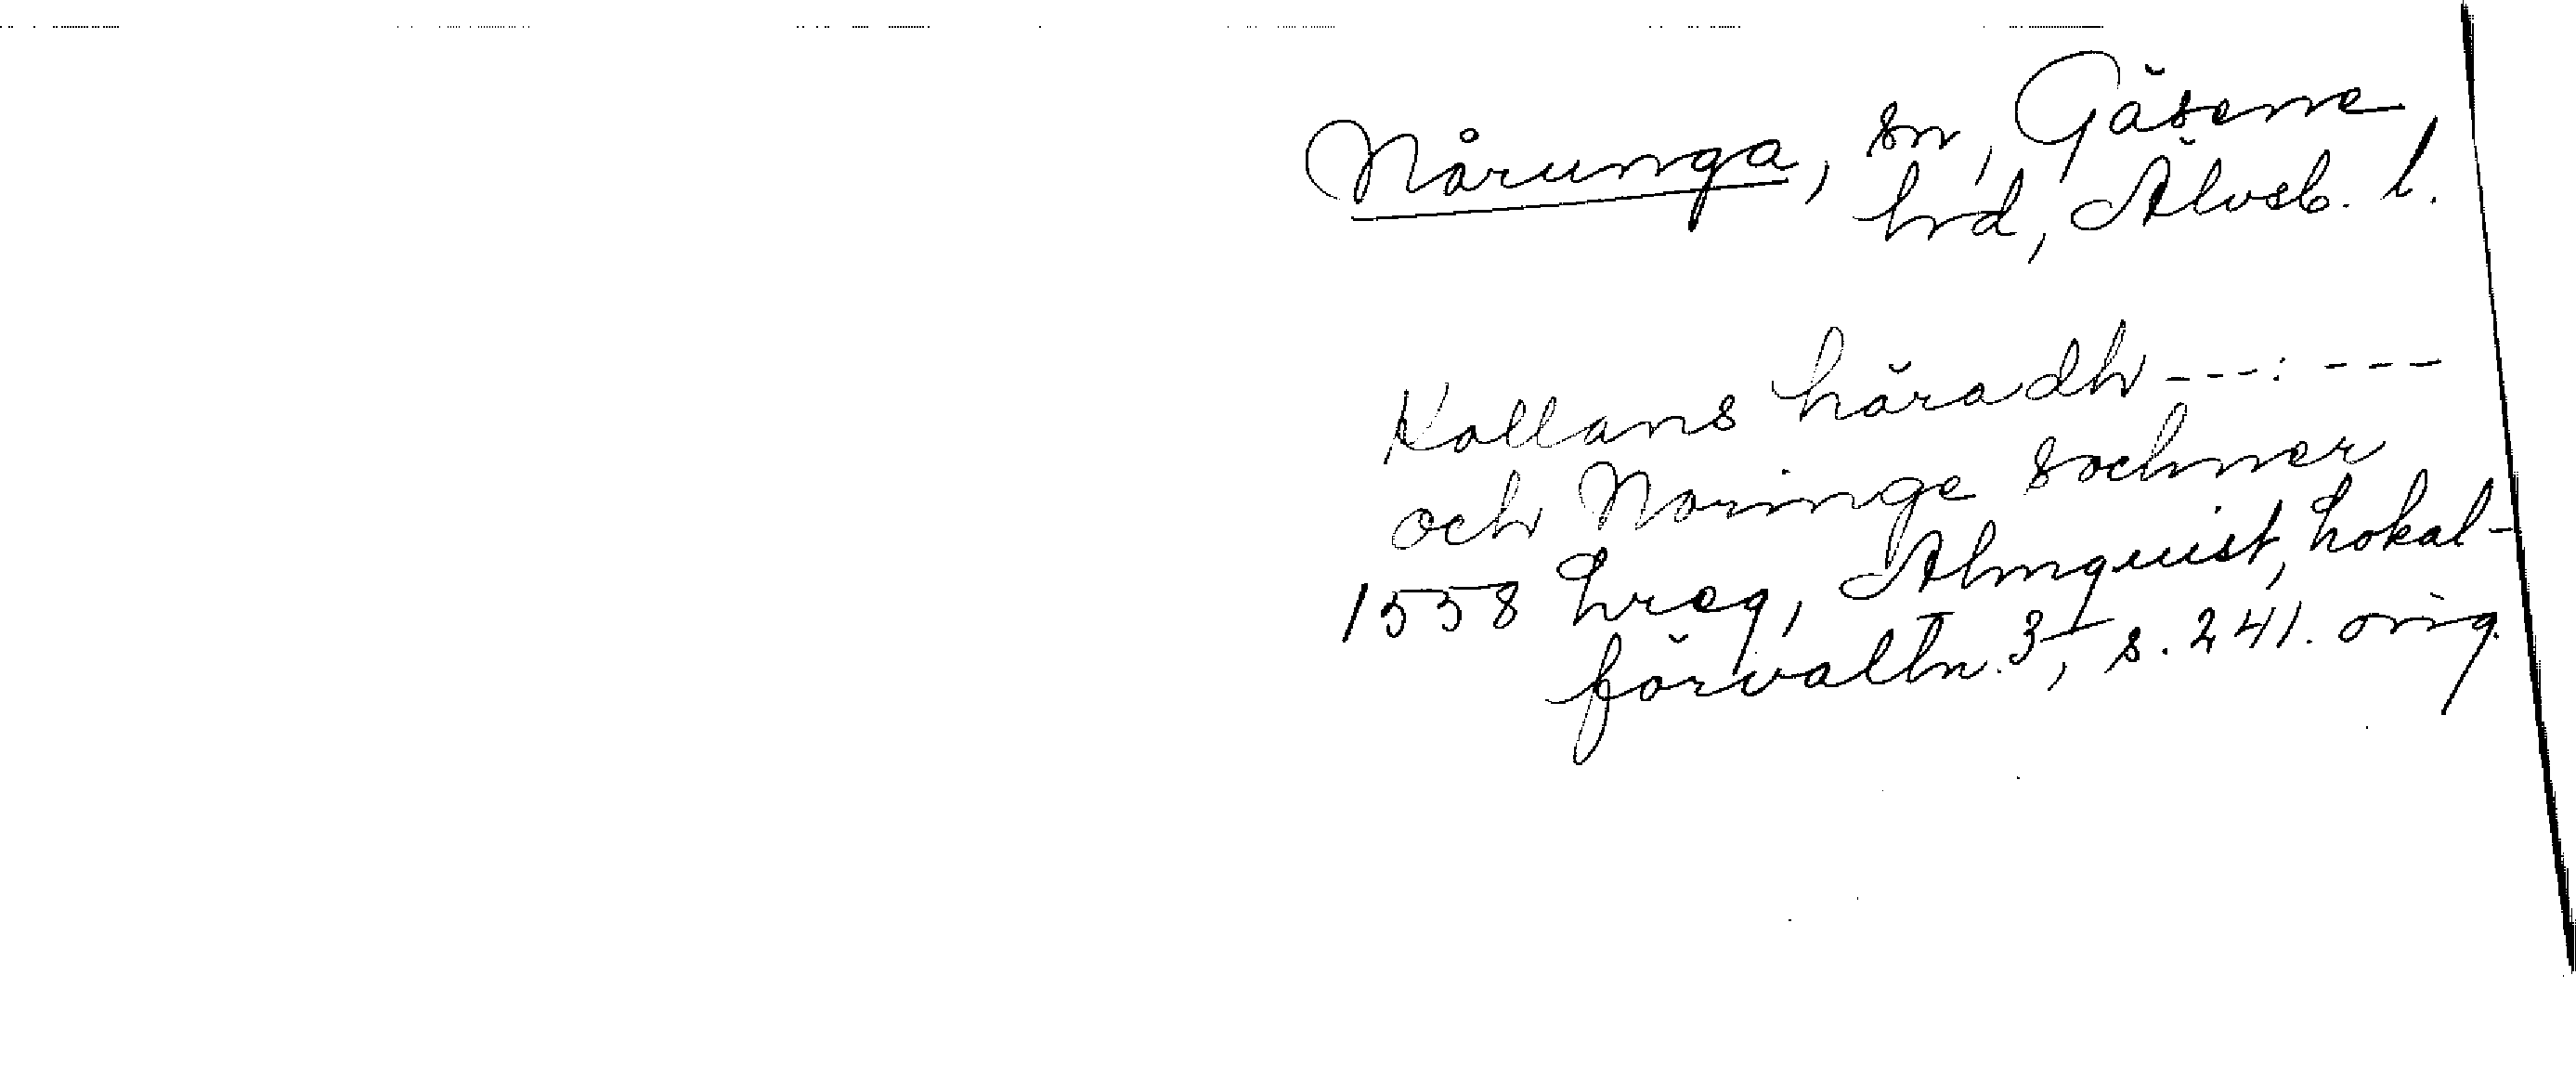 Nårunga, sn, Gäsene
hrd, Älvsb. l.
Kollans häradh ---: ---
och Noringe sochner
1558 Lreg, Almquist, Lokal-
förvaltn. 3, s. 241. orig.